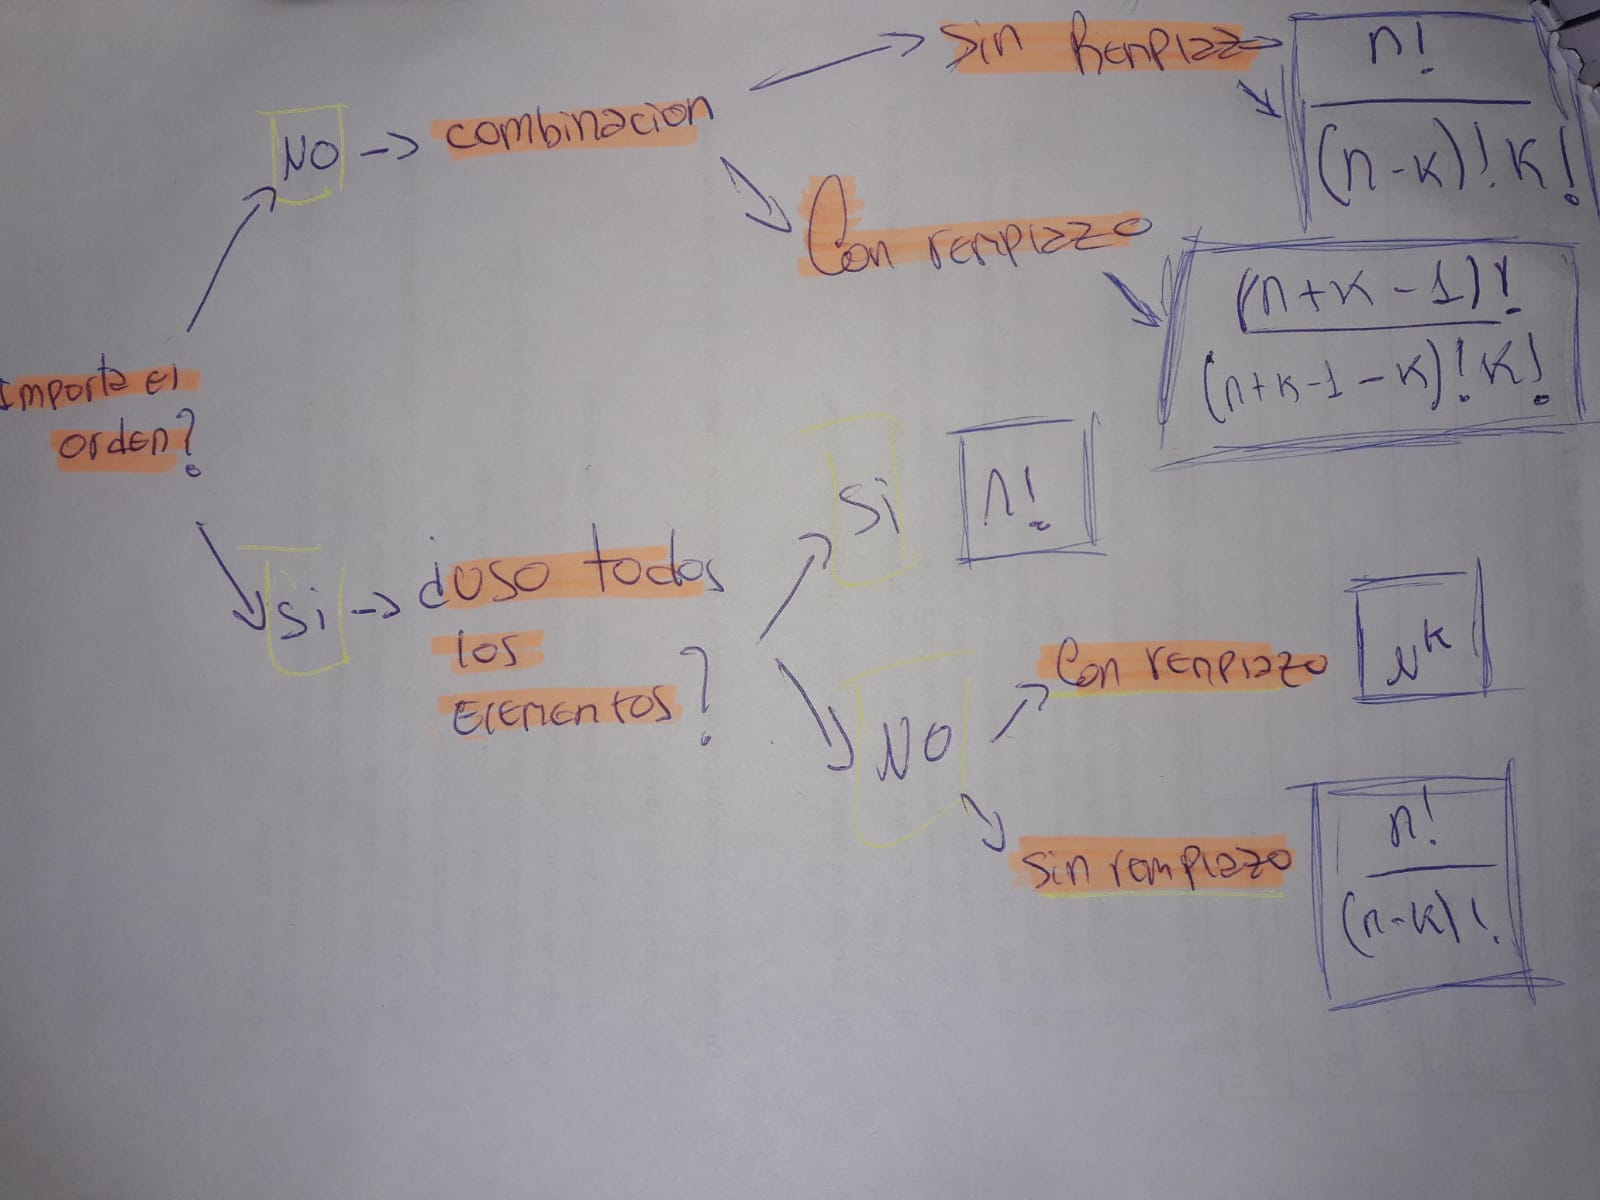 Importa el
orden?
NO -> combinacion
sin Remplazo
n!
(n-k)!k!
Con remplazo
(n+k-1)!
(n+k-1-k)!k!
Si -> ¿uso todos
los
Elementos?
Si
n!
NO
Con remplazo
N^k
sin remplazo
n!
(n-k)!